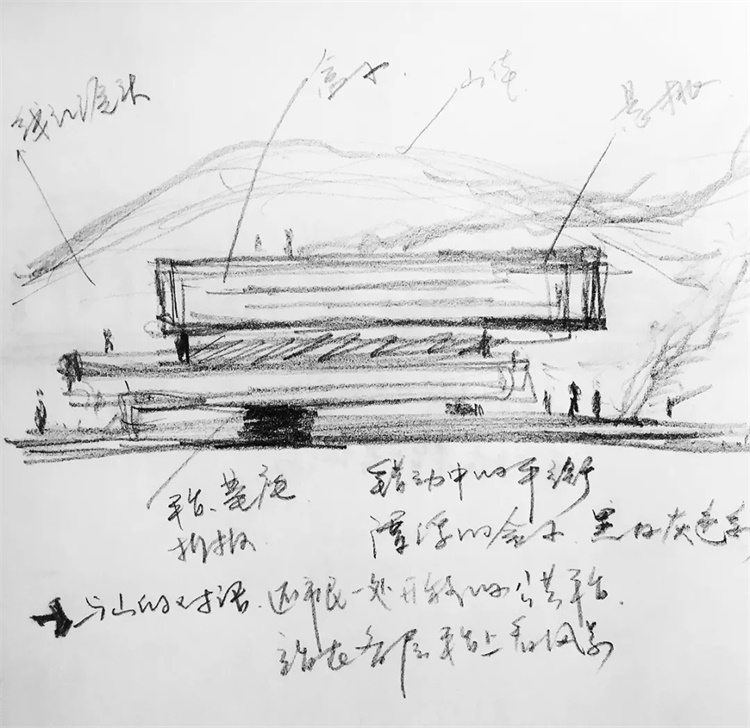 盒子
山体
悬挑
平台、基座
折板
错动中的平衡
漂浮的盒子、黑白灰色系
与山的对话、还市民一处开放的公共平台、
站在各层平台上看风景